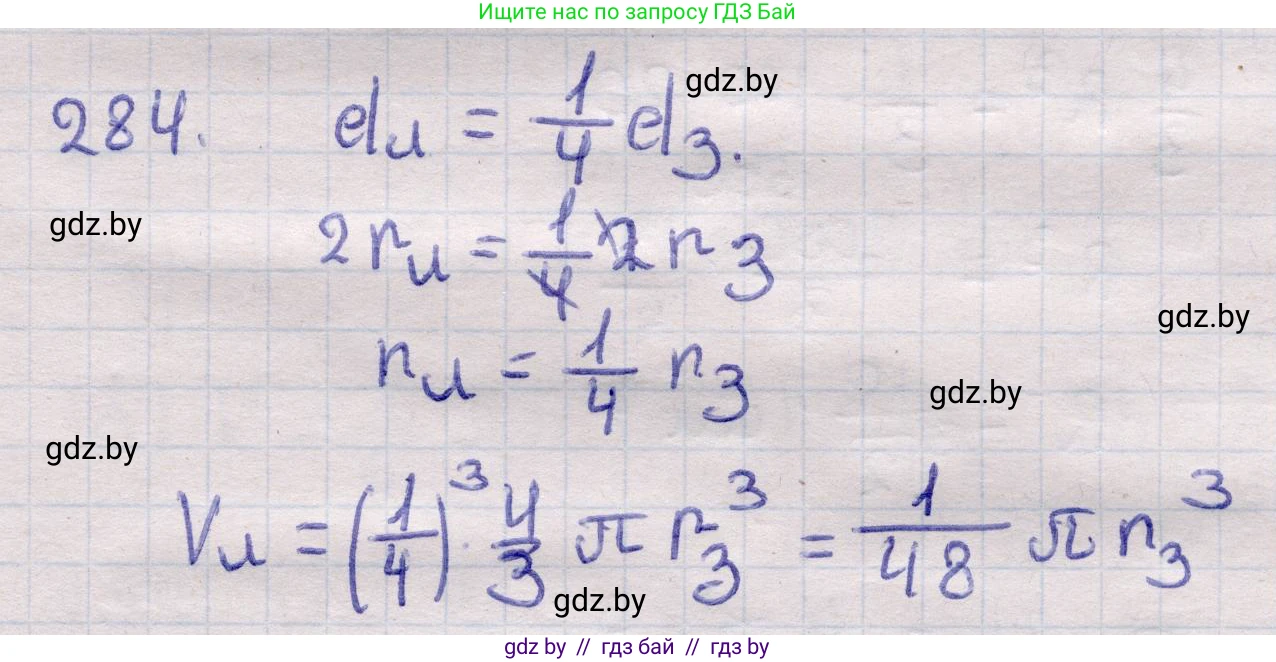 Ищите нас по запросу ГДЗ Бай
284. dл = 1/4 dз.
gdz.by
gdz.by
2rл = 1/4 2rз
gdz.by
rл = 1/4 rз
gdz.by
gdz.by
Vл = (1/4)³ · 4/3 π rз³ = 1/48 π rз³
gdz.by
gdz.by // гдз бай // gdz.by